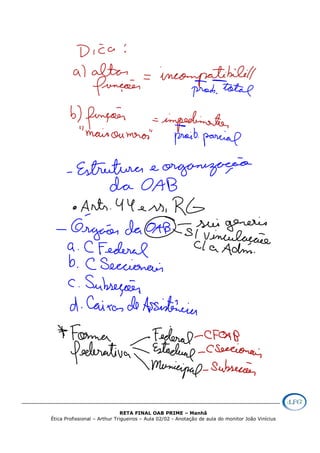 Dica:
a) altas funções = incompatibilid/
proib. total
b) funções = impedimentos
"mais ou menos" proib. parcial
- Estrutura e organização
da OAB
• Arts. 44 e ss, RG
- Órgãos da OAB - sui generis
s/ vinculação
c/ a Adm.
a. C Federal
b. C Seccionais
c. Subseções
d. Caixas de Assistências
* Forma federativa
Federal - CFOAB
Estadual - C Seccionais
Municipal - Subseções
LFG
RETA FINAL OAB PRIME – Manhã
Ética Profissional – Arthur Trigueiros – Aula 02/02 - Anotação de aula do monitor João Vinícius